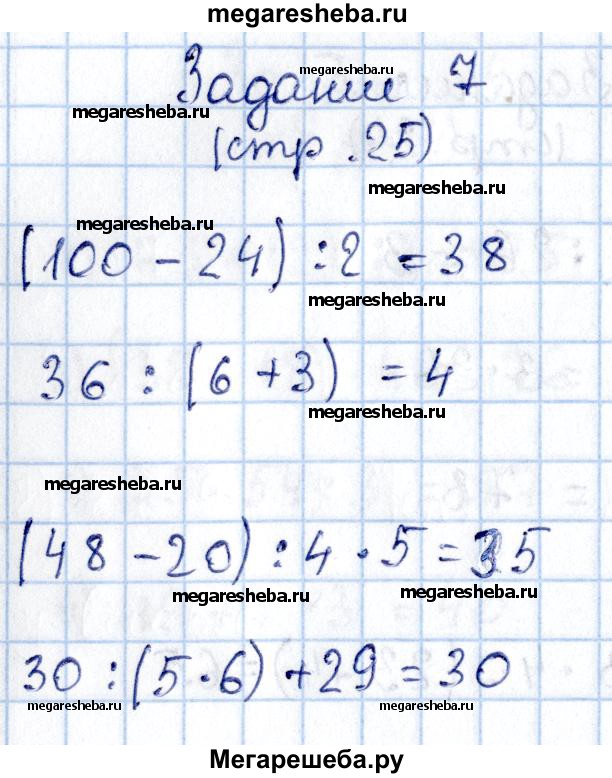 megaresheba.ru
Задание 7
megaresheba.ru
megaresheba.ru
(стр. 25)
megaresheba.ru
megaresheba.ru
(100 - 24) : 2 = 38
megaresheba.ru
36 : (6 + 3) = 4
megaresheba.ru
megaresheba.ru
(48 - 20) : 4 · 5 = 35
megaresheba.ru
megaresheba.ru
30 : (5 · 6) + 29 = 30
megaresheba.ru
megaresheba.ru
megaresheba.ru
Мегарешеба.ру